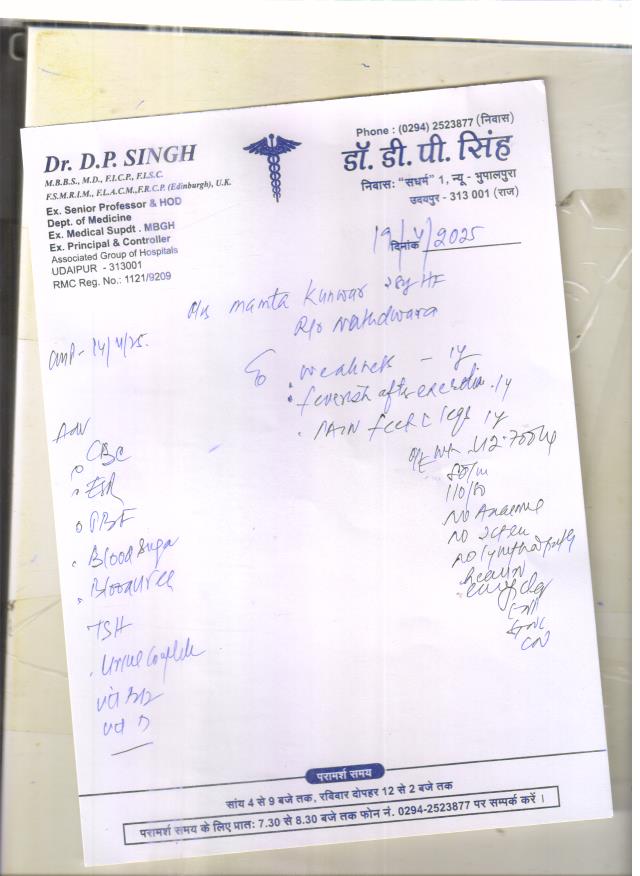 Dr. D.P. SINGH
M.B.B.S., M.D., F.I.C.P., F.I.S.C.
F.S.M.R.I.M., F.L.A.C.M.,F.R.C.P. (Edinburgh), U.K.
Ex. Senior Professor & HOD
Dept. of Medicine
Ex. Medical Supdt . MBGH
Ex. Principal & Controller
Associated Group of Hospitals
UDAIPUR - 313001
RMC Reg. No.: 1121/9209
Phone : (0294) 2523877 (निवास)
डॉ. डी. पी. सिंह
निवासः "सधर्म" 1, न्यू - भुपालपुरा
उदयपुर - 313 001 (राज)
दिनांक 19/4/2025
Mamta Kunwar
R/o Nathdwara
LMP - 14/4/25.
weakness - 1y
feverish after 1y
PAIN feet legs 1y
O/E wt
110/80
NO Anaemia
NO
NO
Adv
CBC
ESR
PBF
Blood Sugar
Blood urea
TSH
Urine Complete
परामर्श समय
सांय 4 से 9 बजे तक, रविवार दोपहर 12 से 2 बजे तक
परामर्श समय के लिए प्रातः 7.30 से 8.30 बजे तक फोन नं. 0294-2523877 पर सम्पर्क करें ।